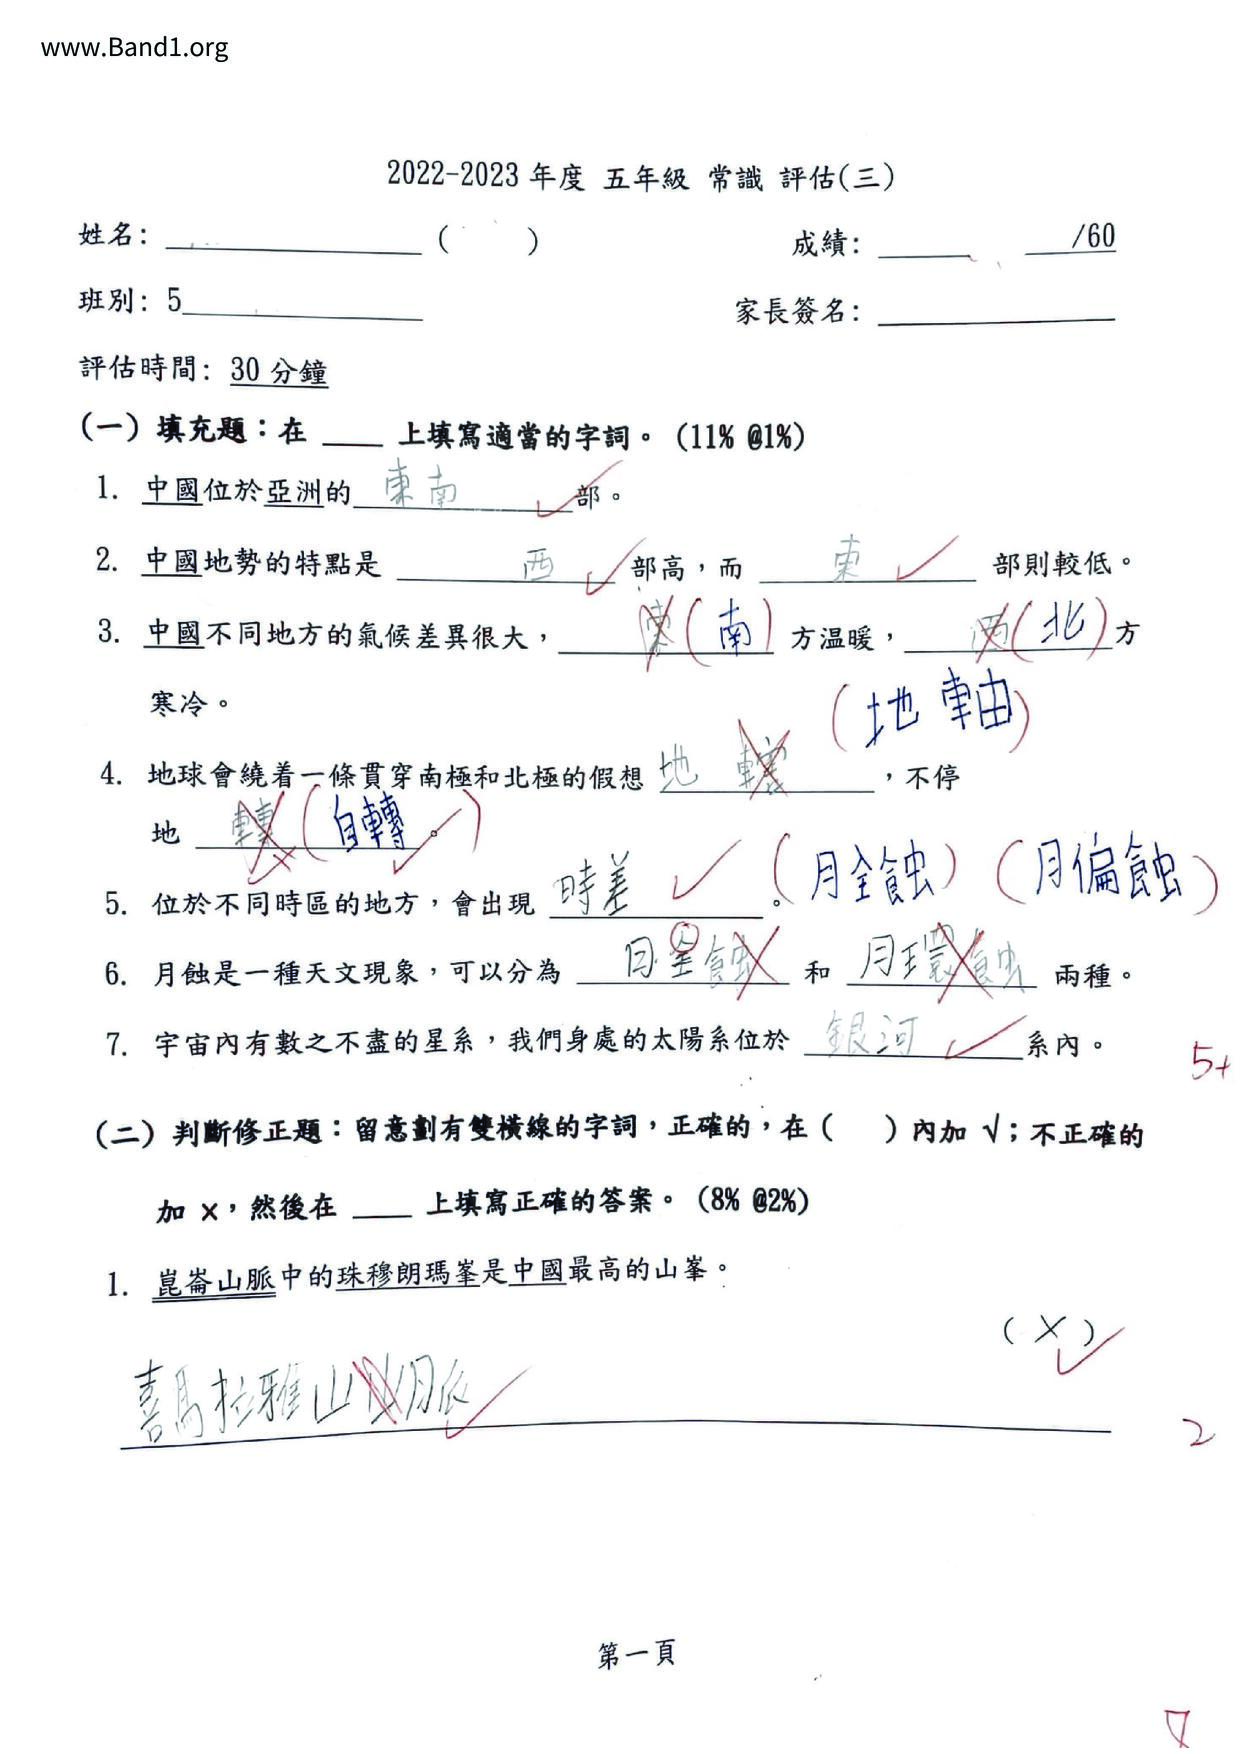 www.Band1.org
2022-2023 年度 五年級 常識 評估(三)
姓名: ( ) 成績: /60
班別: 5 家長簽名:
評估時間: 30 分鐘
(一) 填充題：在 ____ 上填寫適當的字詞。(11% @1%)
1. 中國位於亞洲的 東南 部。
2. 中國地勢的特點是 西 部高，而 東 部則較低。
3. 中國不同地方的氣候差異很大， 東 (南) 方溫暖， 西 (北) 方
寒冷。
(地軸)
4. 地球會繞着一條貫穿南極和北極的假想 地 ，不停
地 轉 (自轉) 。
5. 位於不同時區的地方，會出現 時差 。 (月全蝕) (月偏蝕)
6. 月蝕是一種天文現象，可以分為 月全蝕 和 月環蝕 兩種。
7. 宇宙內有數之不盡的星系，我們身處的太陽系位於 銀河 系內。
5+
(二) 判斷修正題：留意劃有雙橫線的字詞，正確的，在 ( ) 內加 √；不正確的
加 x，然後在 ____ 上填寫正確的答案。(8% @2%)
1. 崑崙山脈中的珠穆朗瑪峯是中國最高的山峯。
( X )
喜馬拉雅山脈
2
第一頁